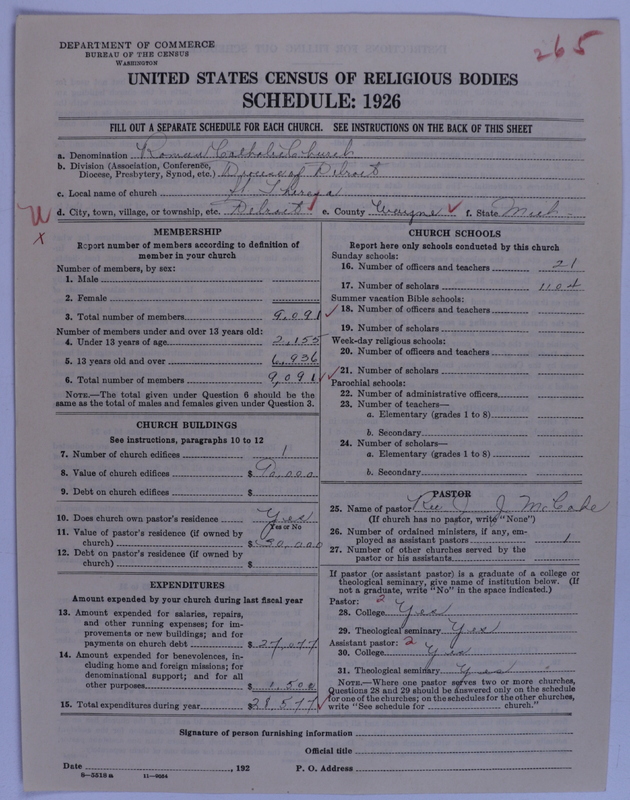 DEPARTMENT OF COMMERCE
BUREAU OF THE CENSUS
WASHINGTON
265
UNITED STATES CENSUS OF RELIGIOUS BODIES
SCHEDULE: 1926
FILL OUT A SEPARATE SCHEDULE FOR EACH CHURCH. SEE INSTRUCTIONS ON THE BACK OF THIS SHEET
a. Denomination Roman Catholic Church
b. Division (Association, Conference, Diocese, Presbytery, Synod, etc.) Diocese of Detroit
c. Local name of church St. Theresa
d. City, town, village, or township, etc. Detroit e. County Wayne f. State Mich
MEMBERSHIP
Report number of members according to definition of
member in your church
Number of members, by sex:
1. Male
2. Female
3. Total number of members 9,091
Number of members under and over 13 years old:
4. Under 13 years of age 2,155
5. 13 years old and over 6,936
6. Total number of members 9,091
NOTE.—The total given under Question 6 should be the
same as the total of males and females given under Question 3.
CHURCH BUILDINGS
See instructions, paragraphs 10 to 12
7. Number of church edifices 1
8. Value of church edifices $ 90,000
9. Debt on church edifices $
10. Does church own pastor's residence Yes
Yes or No
11. Value of pastor's residence (if owned by
church) $ 50,000
12. Debt on pastor's residence (if owned by
church) $
EXPENDITURES
Amount expended by your church during last fiscal year
13. Amount expended for salaries, repairs,
and other running expenses; for im-
provements or new buildings; and for
payments on church debt $ 27,077
14. Amount expended for benevolences, in-
cluding home and foreign missions; for
denominational support; and for all
other purposes $ 1,500
15. Total expenditures during year $ 28,577
CHURCH SCHOOLS
Report here only schools conducted by this church
Sunday schools:
16. Number of officers and teachers 21
17. Number of scholars 1104
Summer vacation Bible schools:
18. Number of officers and teachers
19. Number of scholars
Week-day religious schools:
20. Number of officers and teachers
21. Number of scholars
Parochial schools:
22. Number of administrative officers
23. Number of teachers—
a. Elementary (grades 1 to 8)
b. Secondary
24. Number of scholars—
a. Elementary (grades 1 to 8)
b. Secondary
PASTOR
25. Name of pastor Rev J. J. McCabe
(If church has no pastor, write "None")
26. Number of ordained ministers, if any, em-
ployed as assistant pastors 1
27. Number of other churches served by the
pastor or his assistants
If pastor (or assistant pastor) is a graduate of a college or
theological seminary, give name of institution below. (If
not a graduate, write "No" in the space indicated.)
Pastor: 2
28. College Yes
29. Theological seminary Yes
Assistant pastor: 2
30. College Yes
31. Theological seminary Yes
NOTE.—Where one pastor serves two or more churches,
Questions 28 and 29 should be answered only on the schedule
for one of the churches; on the schedules for the other churches,
write "See schedule for church."
Signature of person furnishing information
Official title
Date , 192 P. O. Address
6—5518a 11—9254